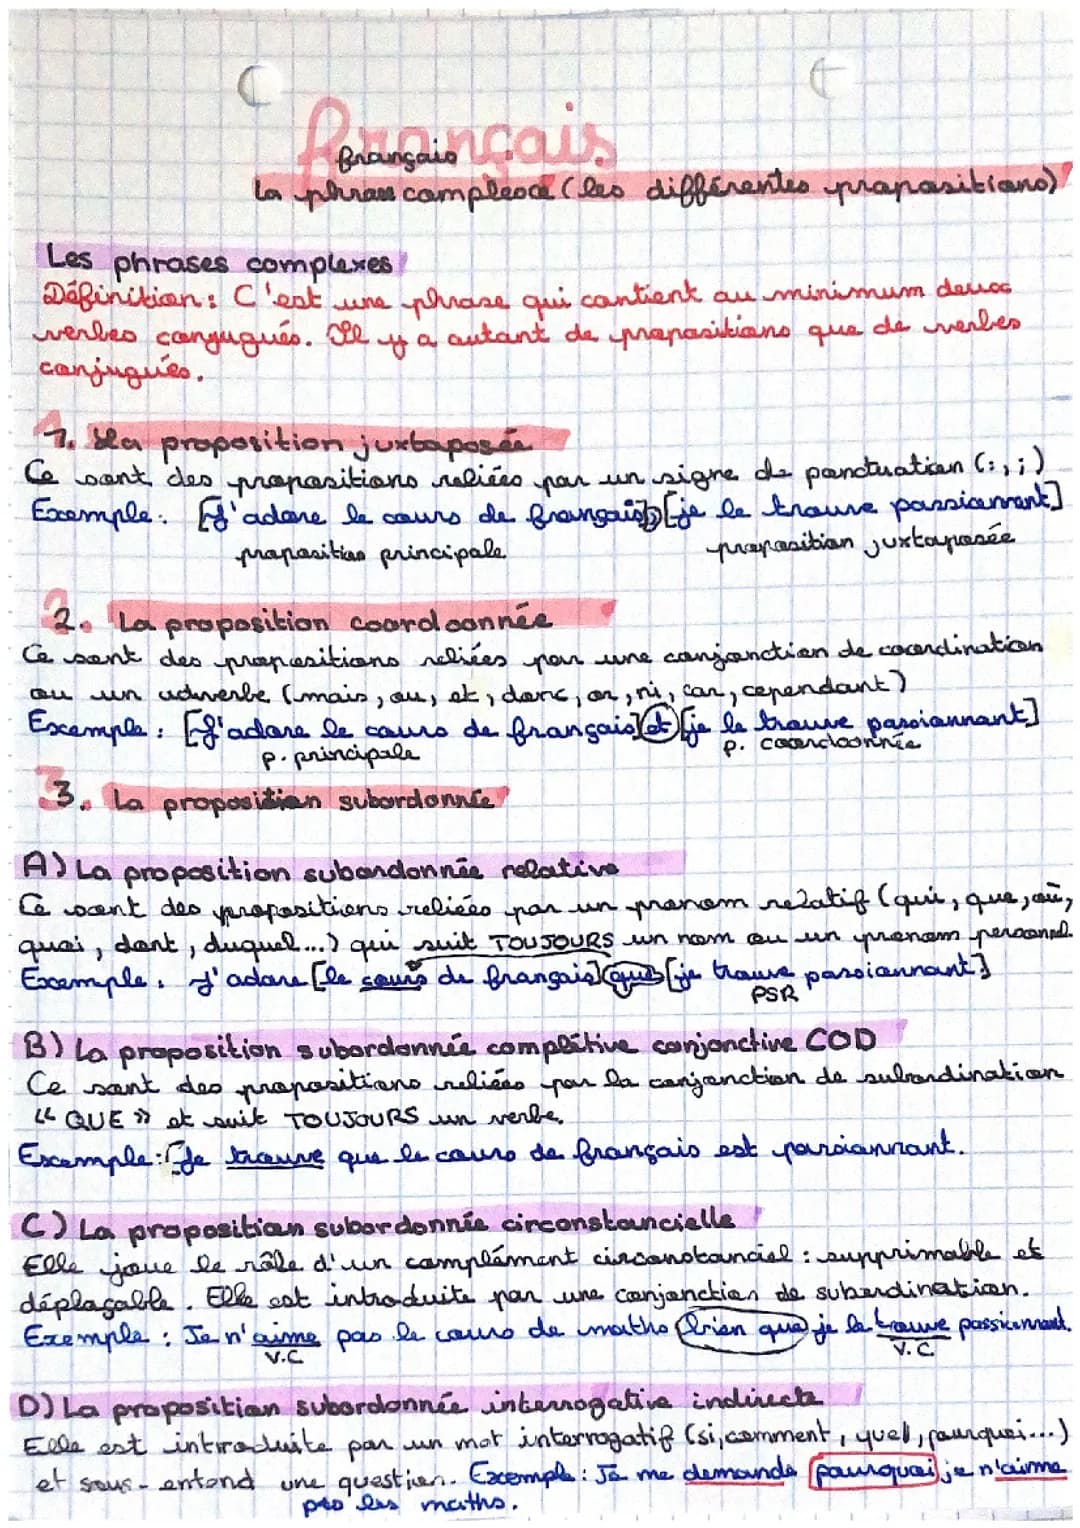 français
français
La phrase complexe (les différentes propositions)
Les phrases complexes
Définition : C'est une phrase qui contient au minimum deux
verbes conjugués. Il y a autant de propositions que de verbes
conjugués.
1. La proposition juxtaposée
Ce sont des propositions reliées par un signe de ponctuation (:,;)
Exemple : [J'adore le cours de français], [je le trouve passionnant]
proposition principale proposition juxtaposée
2. La proposition coordonnée
Ce sont des propositions reliées par une conjonction de coordination
ou un adverbe (mais, ou, et, donc, or, ni, car, cependant)
Exemple : [J'adore le cours de français] et [je le trouve passionnant]
p. principale p. coordonnée
3. La proposition subordonnée
A) La proposition subordonnée relative
Ce sont des propositions reliées par un pronom relatif (qui, que, où,
quoi, dont, duquel...) qui suit TOUJOURS un nom ou un pronom personnel.
Exemple : J'adore [le cours de français] que [je trouve passionnant]
PSR
B) La proposition subordonnée complétive conjonctive COD
Ce sont des propositions reliées par la conjonction de subordination
"QUE" et suit TOUJOURS un verbe.
Exemple : [Je trouve que le cours de français est passionnant.
C) La proposition subordonnée circonstancielle
Elle joue le rôle d'un complément circonstanciel : supprimable et
déplaçable. Elle est introduite par une conjonction de subordination.
Exemple : Je n'aime pas le cours de maths bien que je le trouve passionnant.
V.C V.C
D) La proposition subordonnée interrogative indirecte
Elle est introduite par un mot interrogatif (si, comment, quel, pourquoi...)
et sous-entend une question. Exemple : Je me demande pourquoi je n'aime
pas les maths.